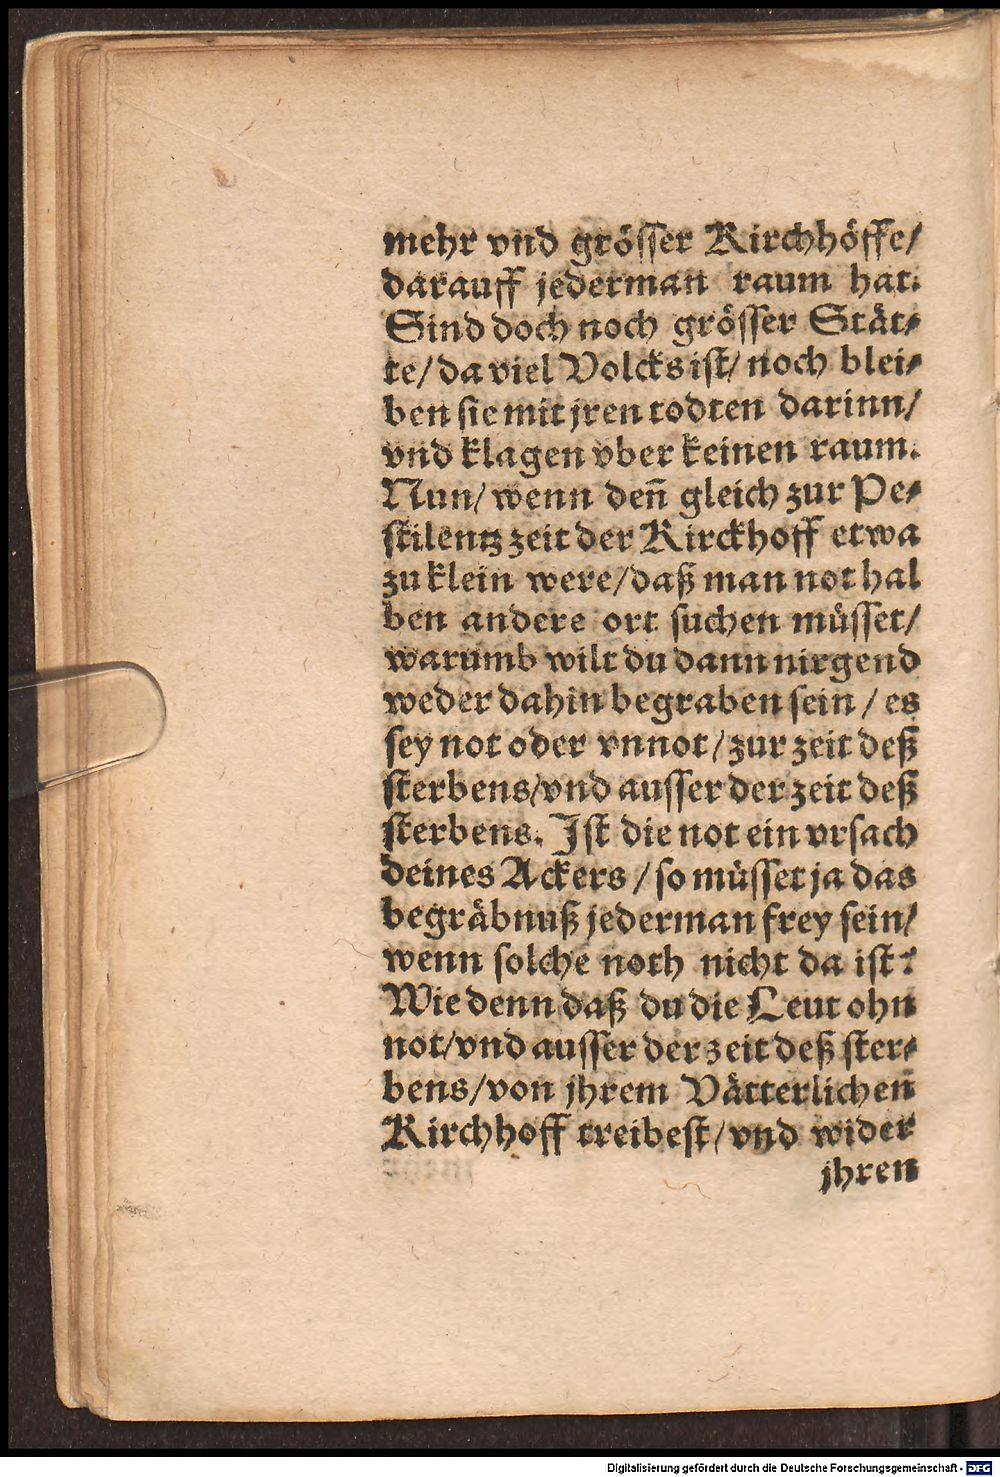 mehr vnd grösser Kirchhöffe/
darauff jederman raum hat.
Sind doch noch grösser Stät⸗
te/da viel Volcks ist/ noch blei⸗
ben sie mit jren todten darinn/
vnd klagen vber keinen raum.
Nun/ wenn deñ gleich zur Pe⸗
stilentz zeit der Kirckhoff etwa
zu klein were/daß man not hal
ben andere ort suchen müsset/
warumb wilt du dann nirgend
weder dahin begraben sein / es
sey not oder vnnot/zur zeit deß
sterbens/vnd ausser der zeit deß
sterbens. Ist die not ein vrsach
deines Ackers / so müsset ja das
begräbnuß jederman frey sein/
wenn solche noth nicht da ist?
Wie denn daß du die Leut ohn
not/vnd ausser der zeit deß ster⸗
bens/von jhrem Vätterlichen
Kirchhoff treibest/vnd wider
jhren
Digitalisierung gefördert durch die Deutsche Forschungsgemeinschaft - DFG